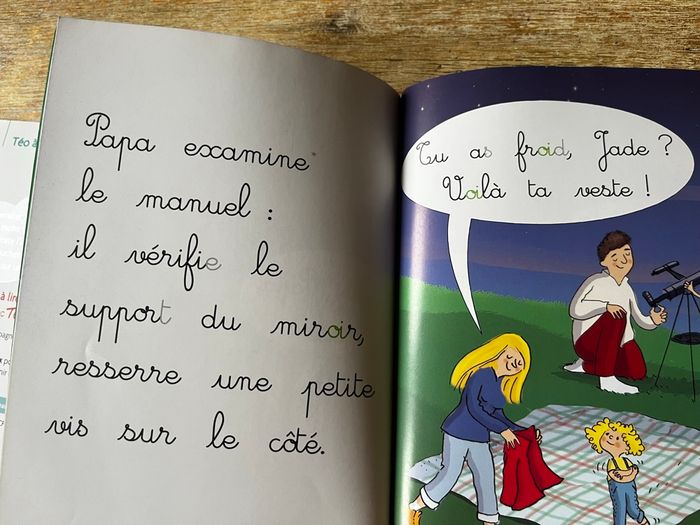 Papa examine
le manuel :
il vérifie le
support du miroir,
resserre une petite
vis sur le côté.
Tu as froid, Jade ?
Voilà ta veste !
Téo à